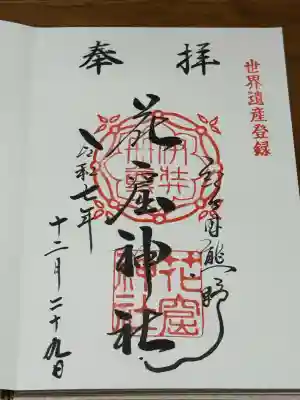 世界遺産登録
奉拝
熊野
花窟神社
令和七年
十二月二十九日
花窟
神社